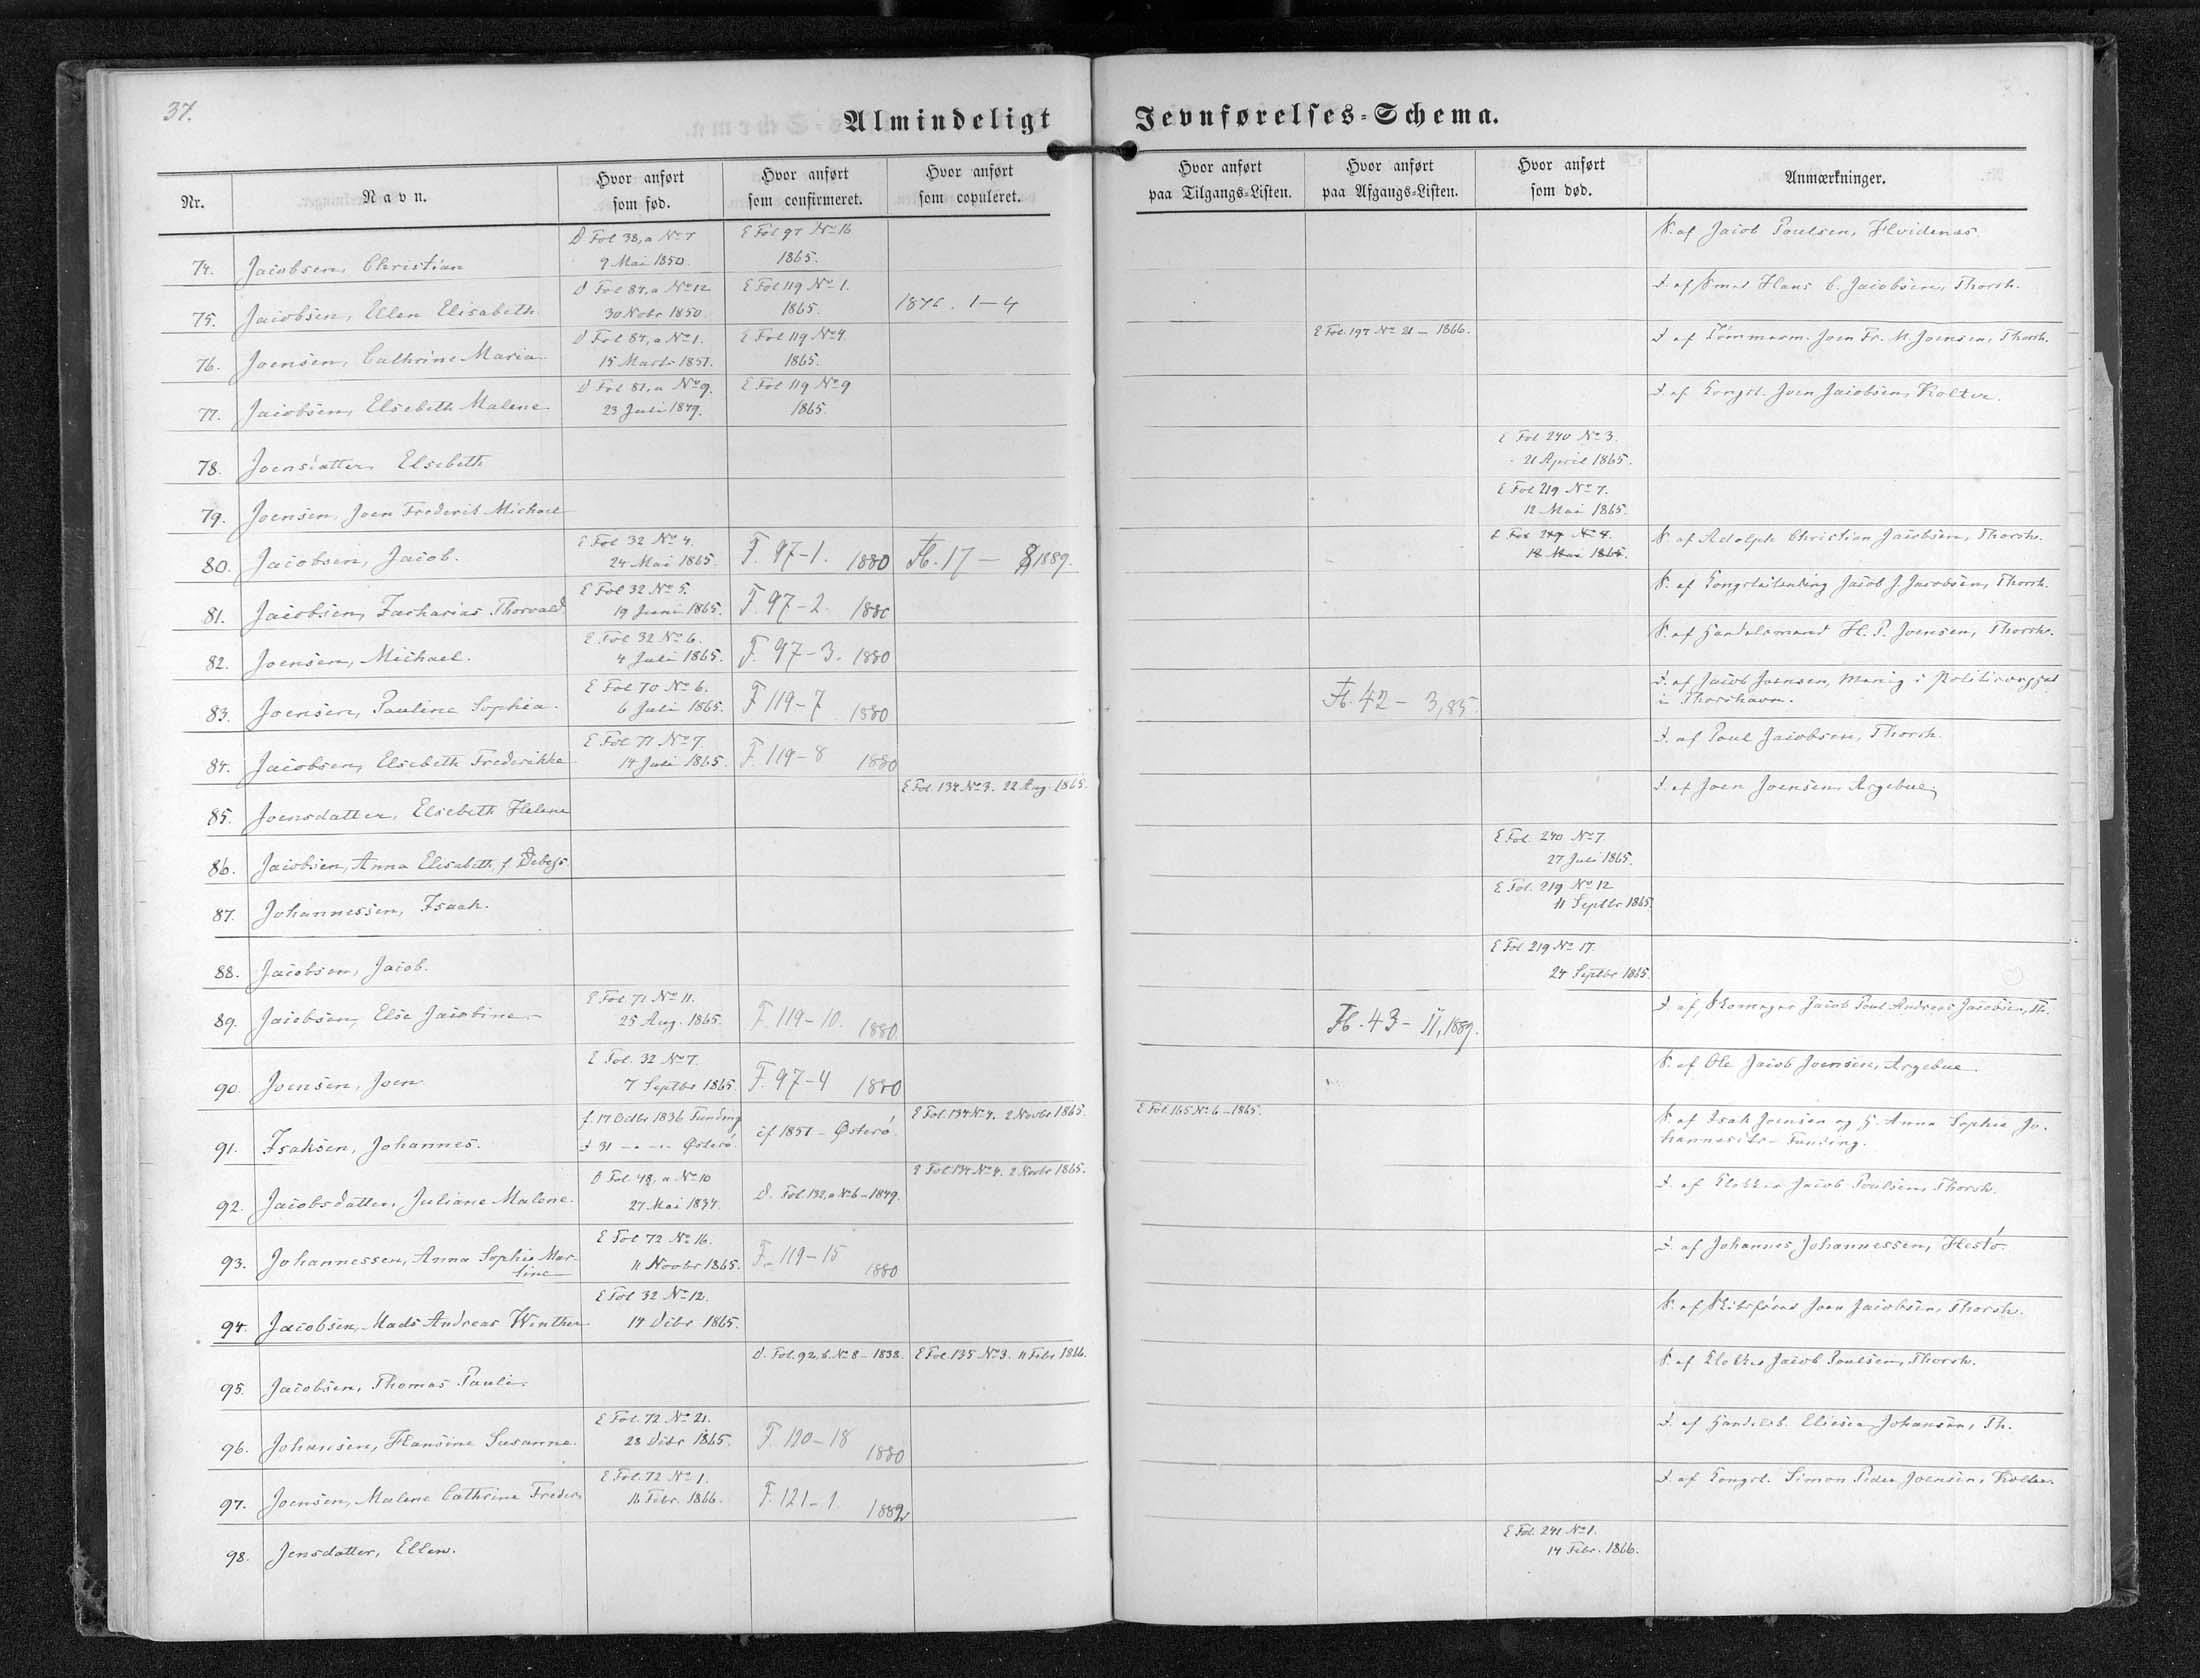 37.
Almindeligt Jevnførelses-Schema.
Nr.
Navn.
Hvor anført som fød.
Hvor anført som confirmeret.
Hvor anført som copuleret.
Hvor anført paa Tilgangs-Listen.
Hvor anført paa Afgangs-Listen.
Hvor anført som død.
Anmærkninger.
74. Jacobsen, Christian D Fol 38,a No 7 9 Mai 1850. E Fol 97 No 16 1865. S. af Jacob Poulsen, Hvidenæs.
75. Jacobsen, Ellen Elisabeth D Fol 84,a No 12 30 Novbr 1850. E Fol 119 No 1. 1865. 1876. 1-4 D. af Hans C. Jacobsen, Thorsh.
76. Joensen, Cathrine Maria D Fol 84,a No 1. 15 Marts 1851. E Fol 119 No 4. 1865. E Fol. 197 No 21 - 1866. D. af Tømmerm. Joen Fr. M. Joensen, Thorsh.
77. Jacobsen, Elsebeth Malene D Fol 81,a No 9. 23 Juli 1849. E Fol 119 No 9 1865. D. af Kongsb. Joen Jacobsen, Kolter.
78. Joensdatter, Elsebeth E Fol 240 No 3. 21 April 1865.
79. Joensen, Joen Frederik Michael E Fol 219 No 7. 12 Mai 1865.
80. Jacobsen, Jacob. E Fol 32 No 4. 24 Mai 1865. F. 97-1. 1880 Fb. 17 - 8 1889. S. af Adolph Christian Jacobsen, Thorsh.
81. Jacobsen, Zacharias Thorvald E Fol 32 No 5. 19 Juni 1865. F. 97-2. 1880 S. af Jacob J. Jacobsen, Thorsh.
82. Joensen, Michael. E Fol 32 No 6. 4 Juli 1865. F. 97-3. 1880 S. af Handelsmand H. P. Joensen, Thorsh.
83. Joensen, Pauline Sophia. E Fol 70 No 6. 6 Juli 1865. F 119-7 1880 Fb. 42 - 3,85. D. af Jacob Joensen, Menig i Politicorpset
i Thorshavn.
84. Jacobsen, Elsebeth Frederikke E Fol 71 No 7. 14 Juli 1865. F. 119-8 1880 D. af Poul Jacobsen, Thorsh.
85. Joensdatter, Elsebeth Helene E Fol. 134 No 3. 22 Aug. 1865. D. af Joen Joensen, Argebue
86. Jacobsen, Anna Elisabeth, f. Debes. E Fol. 240 No 7. 27 Juli 1865.
87. Johannessen, Isaak. E Fol. 219 No 12 11 Septbr 1865.
88. Jacobsen, Jacob. E Fol 219 No 17. 24 Septbr 1865.
89. Jacobsen, Else Jacobine. E Fol. 71 No 11. 25 Aug. 1865. F. 119-10. 1880. Fb. 43 - 11, 1889. D. af Skomager Jacob Poul Andreas Jacobsen, Th.
90. Joensen, Joen E Fol. 32 No 7. 7 Septbr 1865. F. 97-4 1880 S. af Ole Jacob Joensen, Argebue.
91. Isaksen, Johannes. f. 17 Octbr 1836 Funding D 31 - " - " - Østerö. cf 1851 - Østerö. E Fol. 134 No 4. 2 Novbr 1865. E Fol. 165 No 6 - 1865. S. af Isak Joensen og H. Anna Sophie Jo-
hannesdtr - Funding.
92. Jacobsdatter, Juliane Malene. D Fol. 48, a No 10 27 Mai 1834. D. Fol. 132,a No 6 - 1849. E Fol. 134 No 4. 2 Novbr 1865. D. af Klokker Jacob Poulsen, Thorsh.
93. Johannessen, Anna Sophie Mar-
tine E Fol 72 No 16. 11 Novbr 1865. F. 119-15 1880 D. af Johannes Johannessen, Hestö.
94. Jacobsen, Mads Andreas Winther E Fol 32 No 12. 14 Debr 1865. S. af Skibsförer Joen Jacobsen, Thorsh.
95. Jacobsen, Thomas Pauli. D. Fol. 92,b. No 8 - 1838. E Fol. 135 No 3. 11 Febr 1866. S. af Klokker Jacob Poulsen, Thorsh.
96. Johansen, Hansine Susanne. E Fol. 72 No 21. 28 Debr 1865. F. 120-18 1880 D. af Handelsb. Eliesar Johansen, Th.
97. Joensen, Malene Cathrine Freder. E Fol. 72 No 1. 16 Febr. 1866. F. 121-1. 1882 D. af Kongsb. Simon Peder Joensen, Kolter.
98. Jensdatter, Ellen. E Fol. 241 No 1. 14 Febr. 1866.